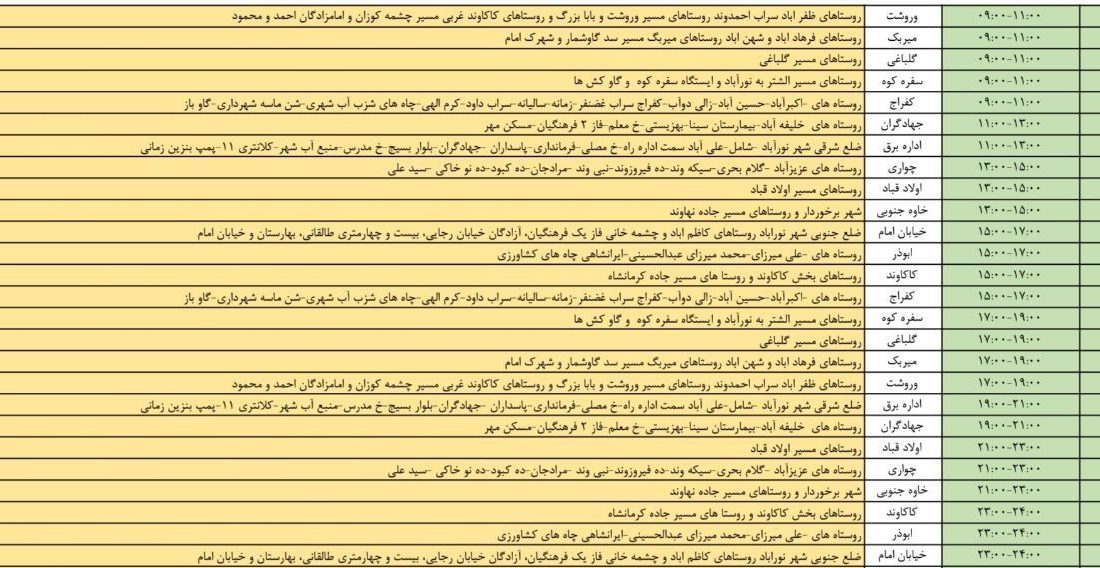 ۰۹:۰۰-۱۱:۰۰ وروشت روستاهای ظفر اباد سراب احمدوند روستاهای مسیر وروشت و بابا بزرگ و روستاهای کاکاوند غربی مسیر چشمه کوزان و امامزادگان احمد و محمود
۰۹:۰۰-۱۱:۰۰ میربک روستاهای فرهاد اباد و شهن اباد روستاهای میربگ مسیر سد گاوشمار و شهرک امام
۰۹:۰۰-۱۱:۰۰ گلباغی روستاهای مسیر گلباغی
۰۹:۰۰-۱۱:۰۰ سفره کوه روستاهای مسیر الشتر به نورآباد و ایستگاه سفره کوه و گاو کش ها
۰۹:۰۰-۱۱:۰۰ کفراج روستاه های -اکبرآباد-حسین آباد-زالی دوآب-کفراج سراب غضنفر-زمانه-سالیانه-سراب داود-کرم الهی-چاه های شزب آب شهری-شن ماسه شهرداری-گاو باز
۱۱:۰۰-۱۳:۰۰ جهادگران روستاه های خلیفه آباد-بیمارستان سینا-بهزیستی-خ معلم-فاز ۲ فرهنگیان-مسکن مهر
۱۱:۰۰-۱۳:۰۰ اداره برق ضلع شرقی شهر نورآباد -شامل-علی آباد سمت اداره راه-خ مصلی-فرمانداری-پاسداران -جهادگران-بلوار بسیج-خ مدرس-منبع آب شهر-کلانتری ۱۱-پمپ بنزین زمانی
۱۳:۰۰-۱۵:۰۰ چواری روستاه های عزیزآباد -گلام بحری-سیکه وند-ده فیروزوند-نبی وند -مرادجان-ده کبود-ده نو خاکی -سید علی
۱۳:۰۰-۱۵:۰۰ اولاد قباد روستاهای مسیر اولاد قباد
۱۳:۰۰-۱۵:۰۰ خاوه جنوبی شهر برخوردار و روستاهای مسیر جاده نهاوند
۱۵:۰۰-۱۷:۰۰ خیابان امام ضلع جنوبی شهر نوراباد روستاهای کاظم اباد و چشمه خانی فاز یک فرهنگیان، آزادگان خیابان رجایی، بیست و چهارمتری طالقانی، بهارستان و خیابان امام
۱۵:۰۰-۱۷:۰۰ ابوذر روستاه های -علی میرزای-محمد میرزای عبدالحسینی-ایرانشاهی چاه های کشاورزی
۱۵:۰۰-۱۷:۰۰ کاکاوند روستاهای بخش کاکاوند و روستا های مسیر جاده کرمانشاه
۱۵:۰۰-۱۷:۰۰ کفراج روستاه های -اکبرآباد-حسین آباد-زالی دوآب-کفراج سراب غضنفر-زمانه-سالیانه-سراب داود-کرم الهی-چاه های شزب آب شهری-شن ماسه شهرداری-گاو باز
۱۷:۰۰-۱۹:۰۰ سفره کوه روستاهای مسیر الشتر به نورآباد و ایستگاه سفره کوه و گاو کش ها
۱۷:۰۰-۱۹:۰۰ گلباغی روستاهای مسیر گلباغی
۱۷:۰۰-۱۹:۰۰ میربک روستاهای فرهاد اباد و شهن اباد روستاهای میربگ مسیر سد گاوشمار و شهرک امام
۱۷:۰۰-۱۹:۰۰ وروشت روستاهای ظفر اباد سراب احمدوند روستاهای مسیر وروشت و بابا بزرگ و روستاهای کاکاوند غربی مسیر چشمه کوزان و امامزادگان احمد و محمود
۱۹:۰۰-۲۱:۰۰ اداره برق ضلع شرقی شهر نورآباد -شامل-علی آباد سمت اداره راه-خ مصلی-فرمانداری-پاسداران -جهادگران-بلوار بسیج-خ مدرس-منبع آب شهر-کلانتری ۱۱-پمپ بنزین زمانی
۱۹:۰۰-۲۱:۰۰ جهادگران روستاه های خلیفه آباد-بیمارستان سینا-بهزیستی-خ معلم-فاز ۲ فرهنگیان-مسکن مهر
۲۱:۰۰-۲۳:۰۰ اولاد قباد روستاهای مسیر اولاد قباد
۲۱:۰۰-۲۳:۰۰ چواری روستاه های عزیزآباد -گلام بحری-سیکه وند-ده فیروزوند-نبی وند -مرادجان-ده کبود-ده نو خاکی -سید علی
۲۱:۰۰-۲۳:۰۰ خاوه جنوبی شهر برخوردار و روستاهای مسیر جاده نهاوند
۲۳:۰۰-۲۴:۰۰ کاکاوند روستاهای بخش کاکاوند و روستا های مسیر جاده کرمانشاه
۲۳:۰۰-۲۴:۰۰ ابوذر روستاه های -علی میرزای-محمد میرزای عبدالحسینی-ایرانشاهی چاه های کشاورزی
۲۳:۰۰-۲۴:۰۰ خیابان امام ضلع جنوبی شهر نوراباد روستاهای کاظم اباد و چشمه خانی فاز یک فرهنگیان، آزادگان خیابان رجایی، بیست و چهارمتری طالقانی، بهارستان و خیابان امام